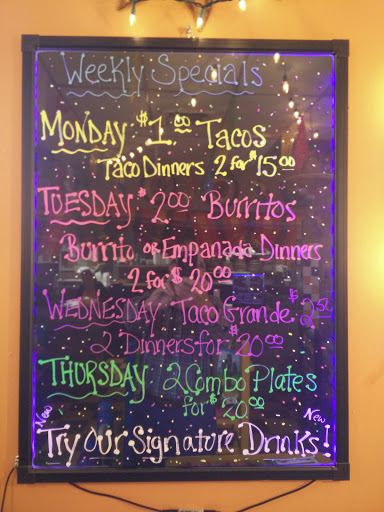 Weekly Specials
MONDAY $1.00 Tacos
Taco Dinners 2 for $15.00
TUESDAY $2.00 Burritos
Burrito or Empanada Dinners
2 for $20.00
WEDNESDAY Taco Grande $2.50
2 Dinners for $20.00
THURSDAY 2 Combo Plates
for $20.00
New New
Try Our Signature Drinks!